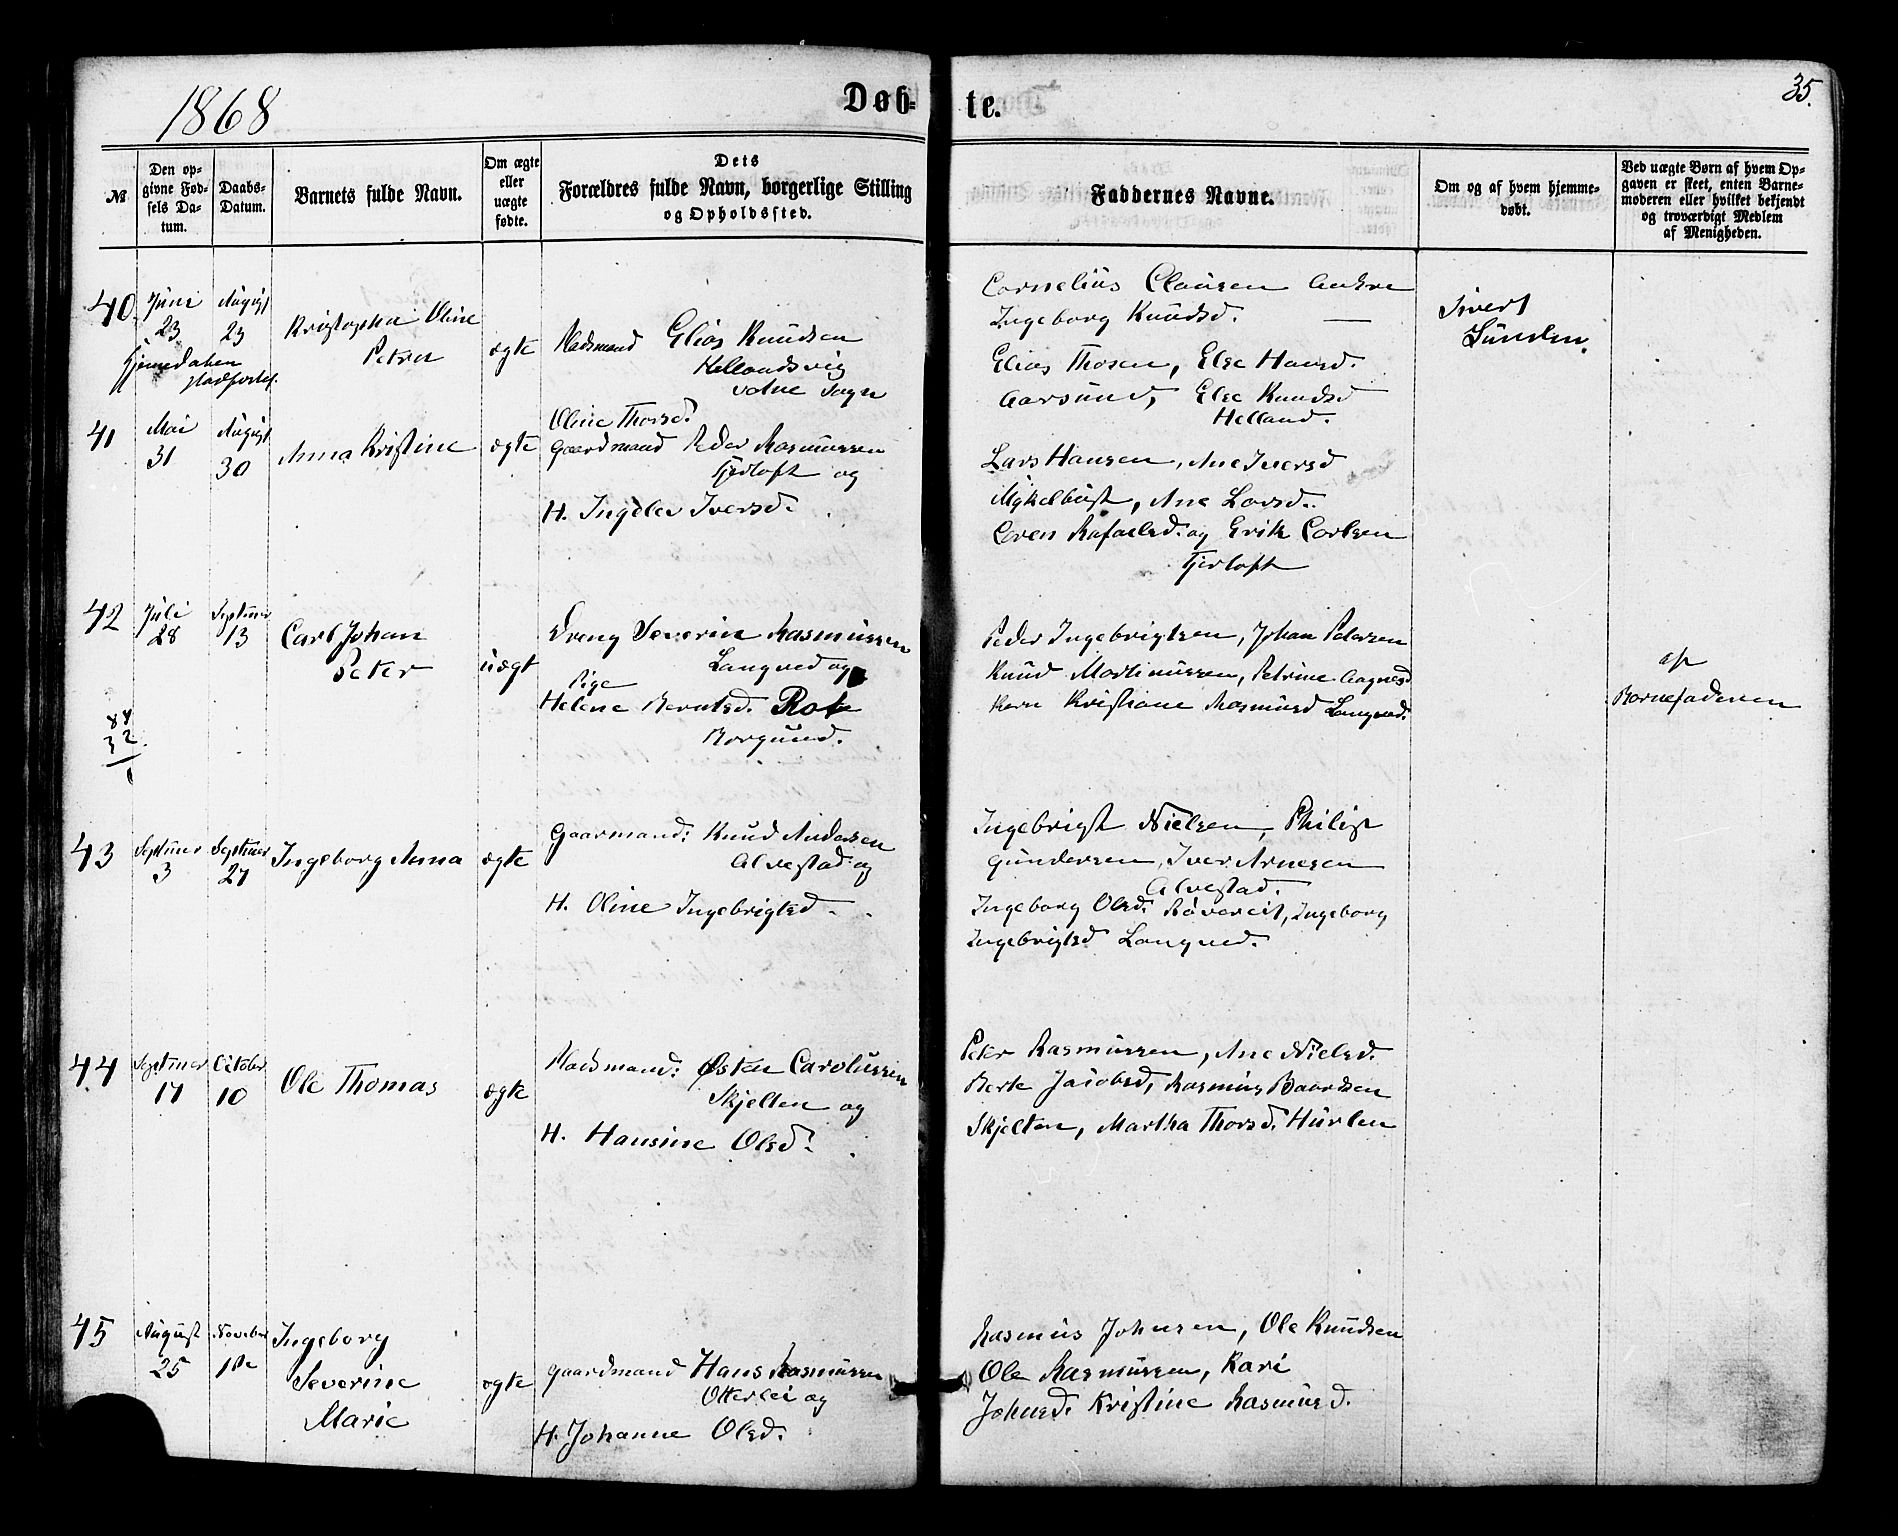 1868
Døb-
te.
35.
№
Den op-
givne Fød-
sels Da-
tum.
Daabs-
Datum.
Barnets fulde Navn.
Om ægte
eller
uægte
fødte.
Dets
Forældres fulde Navn, borgerlige Stilling
og Opholdssted.
Faddernes Navne.
Om og af hvem hjemme-
døbt.
Ved uægte Børn af hvem Op-
gaven er skeet, enten Barne-
moderen eller hvilket bekjendt
og troværdigt Medlem
af Menigheden.
40
Juni
23
August
23
Hjemedaben
stadfestet.
Kristopha Oline
Petra
ægte
Pladsmand Elias Knudsen
Hellandsvig
Sogn
Oline Thorsd.
Cornelius Clausen
Ingeborg Knudsd.
Elias Thosen, Else Hansd.
Aarsund, Else Knudsd
Helland.
Sivert
41
Mai
31
August
30
Anna Kristine
ægte
Gaardmand Peder Rasmussen
Fjerloft og
H. Iversd.
Lars Hansen, Ane Iversd
Myklebust, Ane Larsd.
Rafaelsd. og Erik Carlsen
Fjerloft
42
Juli
28
Septmer
13
Carl Johan
Peter
uægt
Dreng Severin Rasmussen
Langved og
Pige
Helene Berntsd. Rote
Borgund.
Peder Ingebrigtsen, Johan Petersen
Knud Martinussen, Petrine Aagnesd
Kristiane Rasmusd Langved.
af
Barnefaderen
43
Septmer
3
Septmer
27
Ingeborg Anna
ægte
Gaarmand: Knud Andersen
Alvestad og
H. Oline Ingebrigtsd.
Ingebrigt Nielsen, Philip
Gundersen, Iver Arnesen
Alvestad.
Ingeborg Olsd. Røvereit, Ingeborg
Ingebrigtsd Langved.
44
Septmer
17
October
10
Ole Thomas
ægte
Pladsmand: Østen Carolussen
Skjelten og
H. Hansine Olsd.
Peter Rasmussen, Ane Nielsd.
Berte Jacobsd, Rasmus Baardsen
Skjelten, Martha Thorsd. Hurlen
45
August
25
November
1ste
Ingeborg
Severine
Marie
ægte
Gaardmand Hans Rasmussen
Otterlei og
H. Johanne Olsd.
Rasmus Johnsen, Ole Knudsen
Ole Rasmussen, Kari
Johnsd. Kristine Rasmusd.